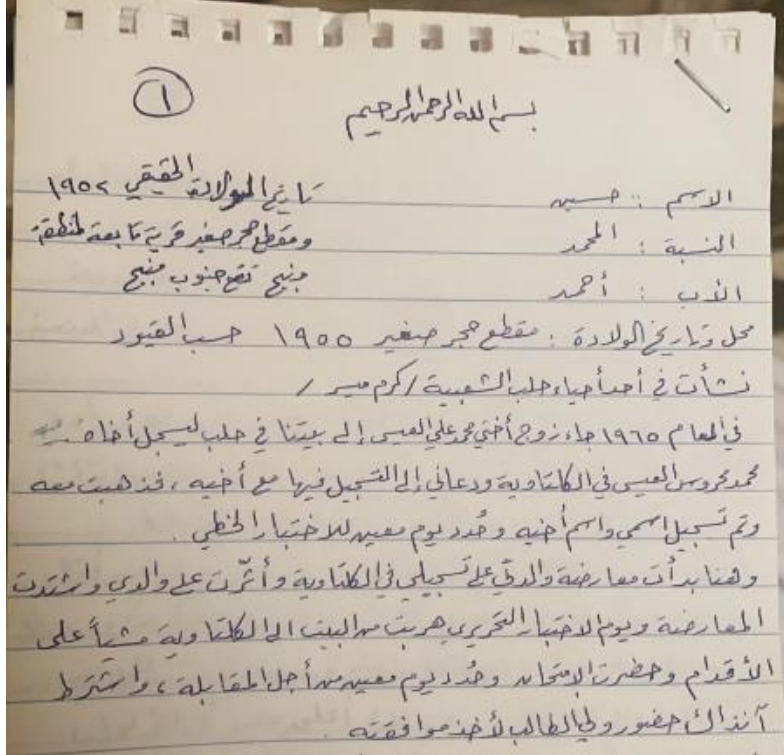 ①
بسم الله الرحمن الرحيم
الاسم : حسين
تاريخ الولادة الحقيقي ١٩٥٢
النسبة : المحمد
ومقطع حجر صغير قرية تابعة لمنطقة
الأب : أحمد
منبج تقع جنوب منبج
محل وتاريخ الولادة : مقطع حجر صغير ١٩٥٥ حسب القيود
نشأت في أحد أحياء حلب الشعبية / كرم ميسر /
في العام ١٩٦٥ جاء زوج أختي محمد علي العيسى إلى بيتنا في حلب ليسجل أخاه
محمد محروس العيسى في الكلتاوية ودعاني إلى التسجيل فيها مع أخيه ، فذهبت معه
وتم تسجيل اسمي واسم أخيه وحُدد يوم معين للاختبار الخطي .
وهنا بدأت معارضة والدتي على تسجيلي في الكلتاوية وأثّرت على والدي واشتدت
المعارضة ويوم الاختبار التحريري هربت من البيت الى الكلتاوية مشياً على
الأقدام وحضرت الامتحان وحُدد يوم معين من أجل المقابلة ، واشترط
آنذاك حضور ولي الطالب لأخذ موافقته